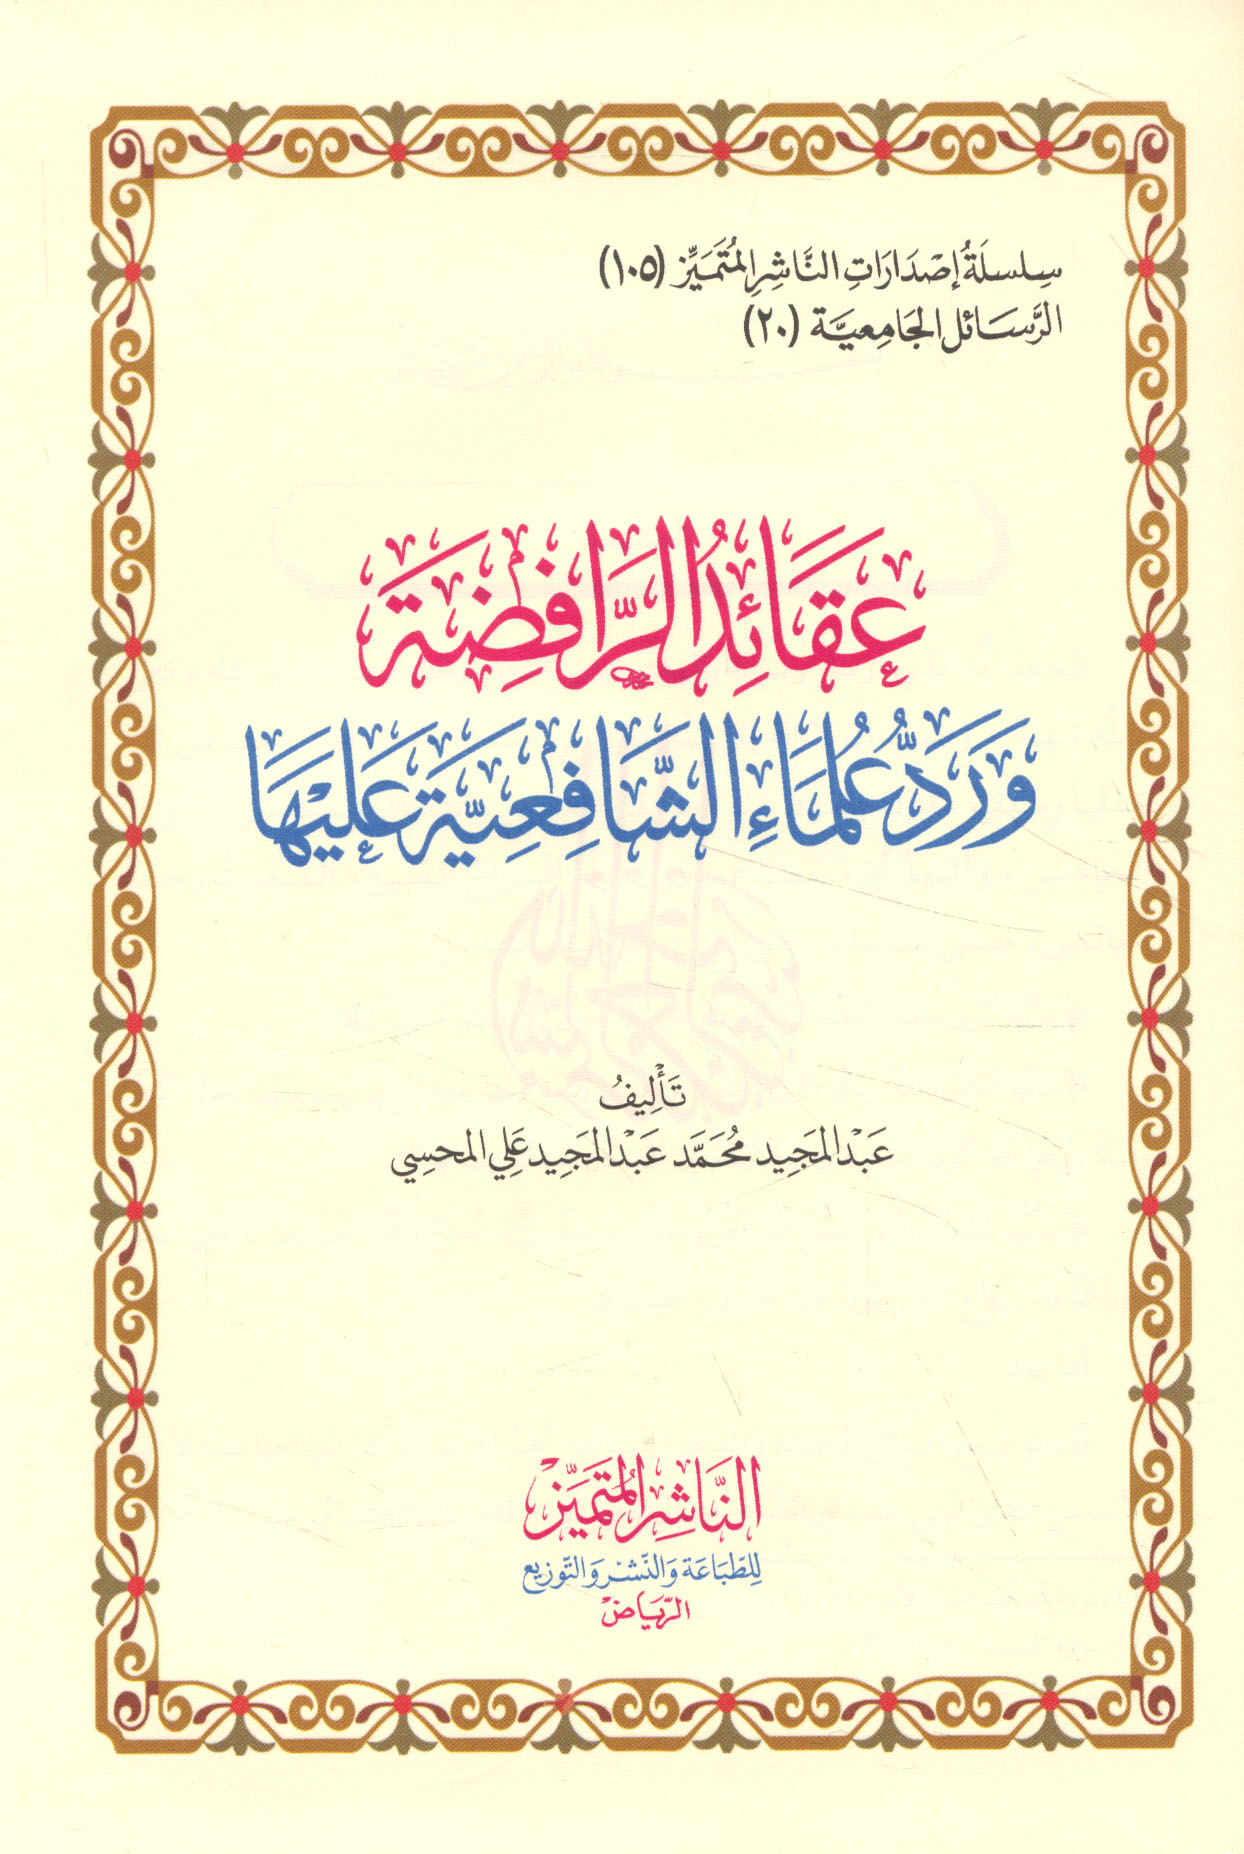 سِلسلَةُ إصْدَارَاتِ النَّاشِرِ المُتَمَيِّز (١٠٥)
الرَّسَائل الجَامِعيَّة (٢٠)
عَقَائِدُ الرَّافِضَة
وَرَدُّ عُلمَاءِ الشَّافِعِيَّة عَليْهَا
تَأْلِيفُ
عَبْد المَجِيد مُحَمَّد عَبْد المَجِيد عَلي المحسِي
النَّاشِر المُتَمَيِّز
لِلطّبَاعَة وَالنّشْر وَالتّوزيع
الرّيَاض